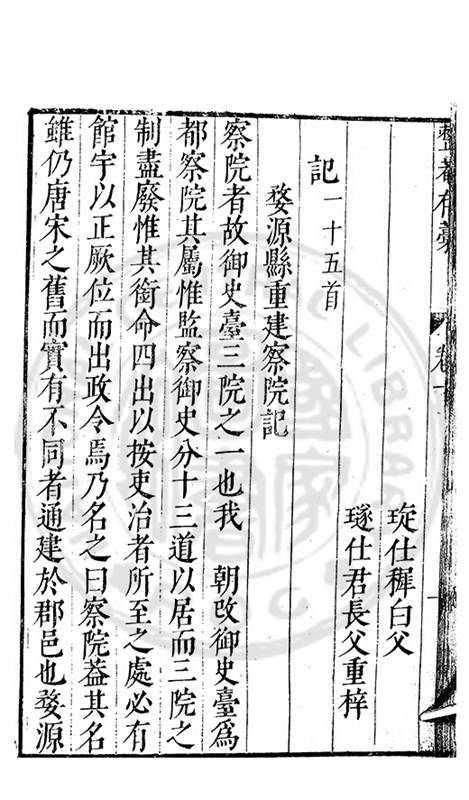 整菴存藁 卷一
琁仕穉白父
璲仕君長父重梓
記一十五首
婺源縣重建察院記
察院者故御史臺三院之一也我 朝改御史臺爲
都察院其屬惟監察御史分十三道以居而三院之
制盡廢惟其銜命四出以按吏治者所至之處必有
館宇以正厥位而出政令焉乃名之曰察院葢其名
雖仍唐宋之舊而實有不同者通建於郡邑也婺源